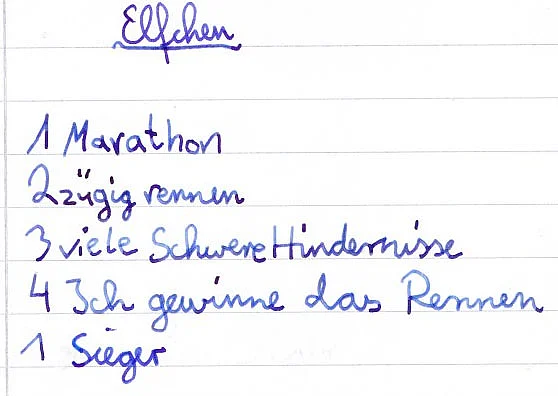 Elfchen
1 Marathon
2 zügig rennen
3 viele Schwere Hindernisse
4 Ich gewinne das Rennen
1 Sieger